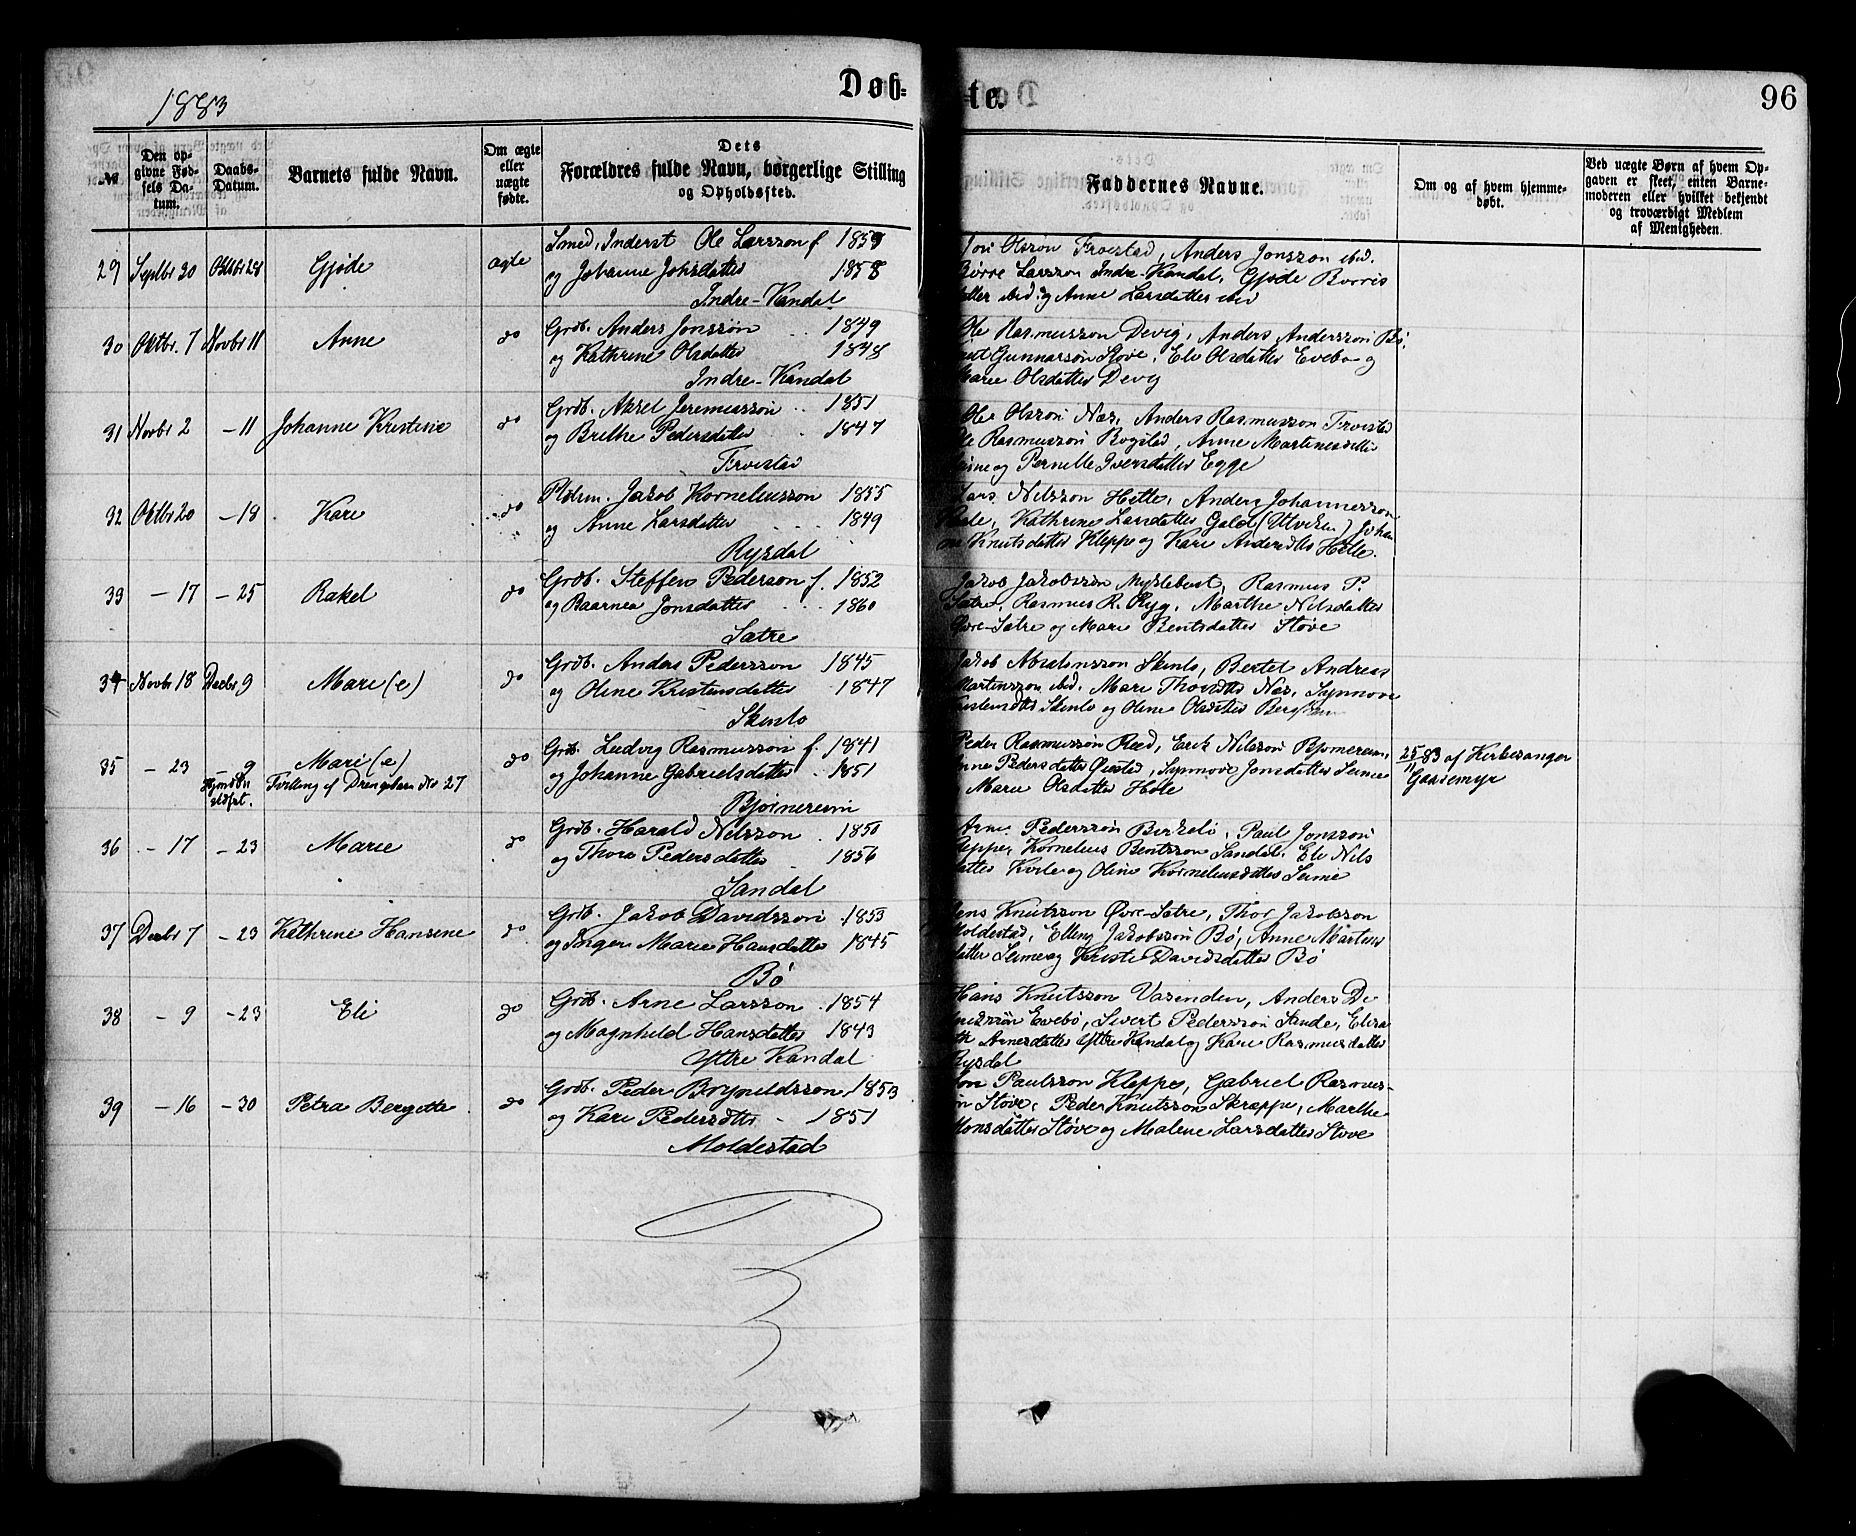 Døb=
te.
96
1883
№
Den op-
givne Fød-
sels Da-
tum.
Daabs-
Datum.
Barnets fulde Navn.
Om ægte
eller
uægte
fødte.
Dets
Forældres fulde Navn, borgerlige Stilling
og Opholdssted.
Faddernes Navne.
Om og af hvem hjemme-
døbt.
Ved uægte Børn af hvem Op-
gaven er skeet, enten Barne-
moderen eller hvilket bekjendt
og troværdigt Medlem
af Menigheden.
29 Septbr 30 Oktbr 28 Gjøde ægte
Smed, Inderst Ole Larsson f. 1859
og Johanne Johsdatter 1858
Indre-Kandal
Jon Olsson Froistad, Anders Jonsson ibid.
Børre Larsson Indre-Kandal, Gjøde Borris
datter ibid. og Anne Larsdatter ibid
30 Oktbr. 7 Novbr 11 Anne do
Grdb. Anders Jonsson 1849
og Kathrine Olsdatter 1848
Indre-Kandal
Ole Rasmusson Devig, Anders Andersson Bø,
Gunnarson Støve, Eli Olsdatter Evebø og
Marie Olsdatter Devig
31 Novbr 2 - 11 Johanne Kristine do
Grdb. Aksel Jeremiasson 1851
og Brithe Pedersdatter 1847
Froistad
Ole Olsson Næs, Anders Rasmusson Froistad
Ole Rasmusson Bogstad, Anne Martinusdatter
og Pernille Iversdatter Egge
32 Oktbr 20 - 18 Kari do
Pldsm. Jakob Korneliusson 1855
og Anne Larsdatter 1849
Rysdal
Lars Nilsson Hetle, Anders Johannesson
Kathrine Larsdatter Gald (Utviken) Johan
ne Knutsdatter Kleppe og Kari Andersdtr Hetle.
33 - 17 - 25 Rakel do
Grdb. Steffen Pederson f. 1852
og Baarnea Jonsdatter 1860
Sætre
Jakob Jakobsson Myklebust, Rasmus P.
Sætre, Rasmus R. Ryg, Marthe Nilsdatter
Øvre-Sætre og Mari Bentsdatter Støve
34 Novbr 18 Decbr 9 Mari(e) do
Grdb. Anders Pedersson 1845
og Oline Kristensdatter 1847
Skinlo
Jakob Absalonsson Skinlo, Bertel Andreas
Martinsson ibid. Mari Thorsdtr Næs, Synnøve
Skinlo og Oline Olsdatter
35 - 23 - 9 Mari(e) do
Tvilling af Drengebarn No 27
Grdb. Ludvig Rasmusson f. 1841
og Johanne Gabrielsdatter 1851
Bjørnereim
Peder Rasmusson Reed, Erik Nilsson Bjørnereim,
Anne Pedersdatter Ørstad, Synnøve Jonsdatter Seime
Marie Olsdatter Hole
25/11 83 af Kirkesanger
Gaasemyr
36 - 17 - 23 Marie do
Grdb. Harald Nilsson 1850
og Thora Pedersdatter 1856
Sandal
Arne Pedersson Birkelo, Paul Jonsson
Kleppe, Kornelius Bentsson Sandal, Eli Nils
datter Kvile og Oline Korneliusdatter Seime
37 Decbr 7 - 23 Kathrine Hansine do
Grdb. Jakob Davidsson 1853
og Inger Marie Hansdatter 1845
Bø
Jens Knutsson Øvre-Sætre, Thor Jakobsson
Moldestad, Elling Jakobsson Bø, Anne Martins
datter Seime og Kristi Davidsdatter Bø
38 - 9 - 23 Eli do
Grdb. Arne Larsson 1854
og Magnhild Hansdatter 1843
Yttre Kandal
Hans Knutsson Vasenden, Anders Di
driksson Evebø, Sivert Pedersson Sande, Eliza
beth Arnesdatter Yttre Kandal og Kari Rasmusdatter
Rysdal
39 - 16 - 30 Petra Bergette do
Grdb. Peder Brynildsson 1853
og Kari Pedersdtr - 1851
Moldestad
Jon Paulsson Kleppe, Gabriel Rasmus-
son Støve, Peder Knutsson Skreppe, Marthe
Monsdatter Støve og Malene Larsdatter Støve